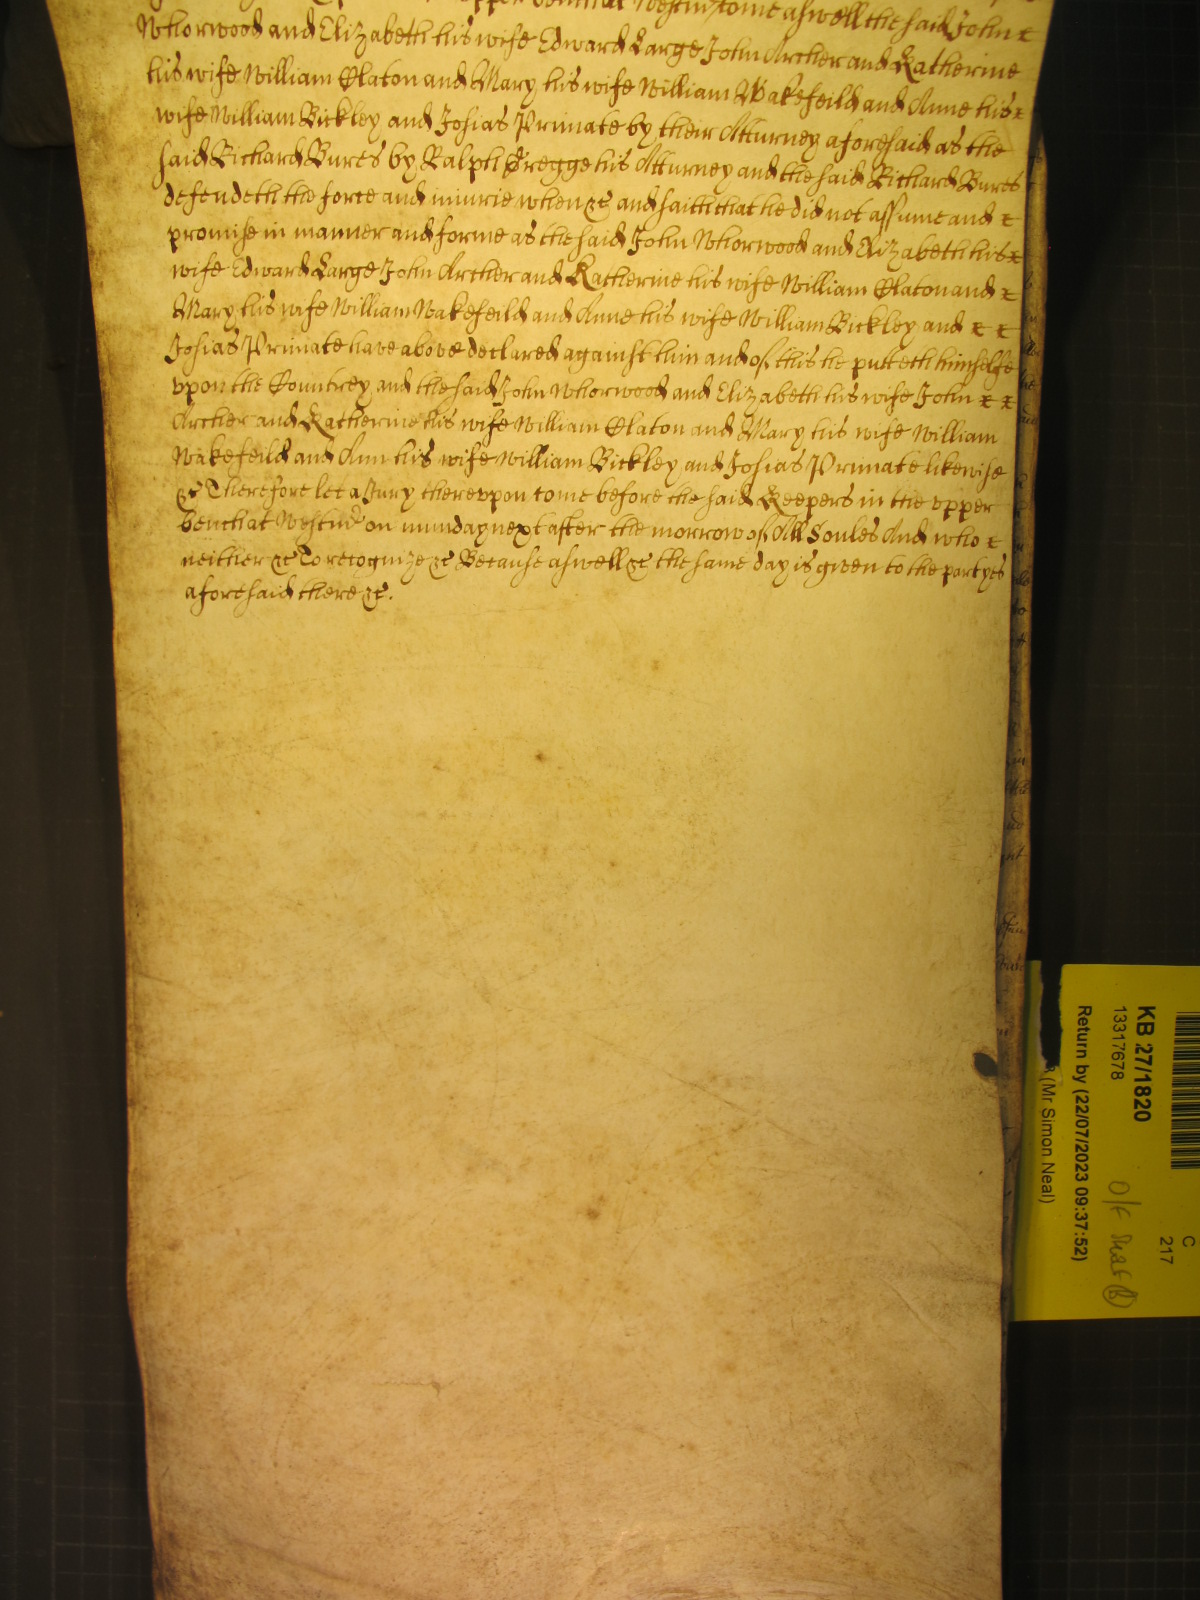 upper bench at Westm̃ come aswell the said John
Whorwood and Elizabeth his wife Edward Large John Archer and Katherine
his wife William Claton and Mary his wife William Wakefeild and Anne his
wife William Bickley and Josias Primate by their Atturney aforesaid as the
said Richard Bures by Ralph Gregge his Atturney and the said Richard Bures
defendeth the force and iniurie when &c and saith that he did not assume and
promise in manner and forme as the said John Whorwood and Elizabeth his
wife Edward Large John Archer and Katherine his wife William Claton and
Mary his wife William Wakefeild and Anne his wife William Bickley and
Josias Primate have above declared against him and of this he putteth himselfe
vpon the Countrey and the said John Whorwood and Elizabeth his wife John
Archer and Katherine his wife William Claton and Mary his wife William
Wakefeild and Ann his wife William Bickley and Josias Primate likewise
&c Therefore let a Jury therevpon come before the said Keepers in the vpper
bench at Westm̃ on munday next after the morrow of All Soules And who
neither &c To recognize &c Because aswell &c the same day is given to the partyes
aforesaid there &c.
KB 27/1820
13317678
Return by (22/07/2023 09:37:52)
(Mr Simon Neal)
C
217